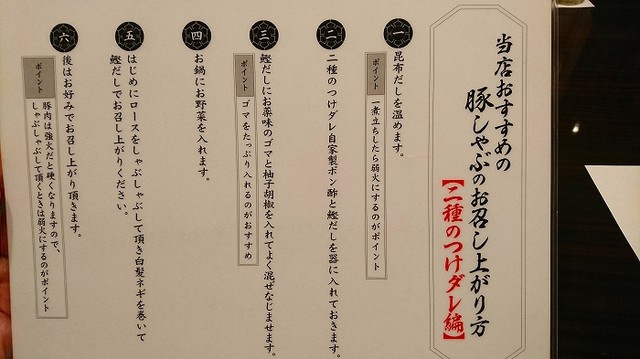 当店おすすめの
豚しゃぶのお召し上がり方
【二種のつけダレ編】
一
昆布だしを温めます。
ポイント
一煮立ちしたら弱火にするのがポイント
二
二種のつけダレ自家製ポン酢と鰹だしを器に入れておきます。
三
鰹だしにお薬味のゴマと柚子胡椒を入れてよく混ぜなじませます。
ポイント
ゴマをたっぷり入れるのがおすすめ
四
お鍋にお野菜を入れます。
五
はじめにロースをしゃぶしゃぶして頂き白髪ネギを巻いて
鰹だしでお召し上がりください。
六
後はお好みでお召し上がり頂きます。
ポイント
豚肉は強火だと硬くなりますので、
しゃぶしゃぶして頂くときは弱火にするのがポイント